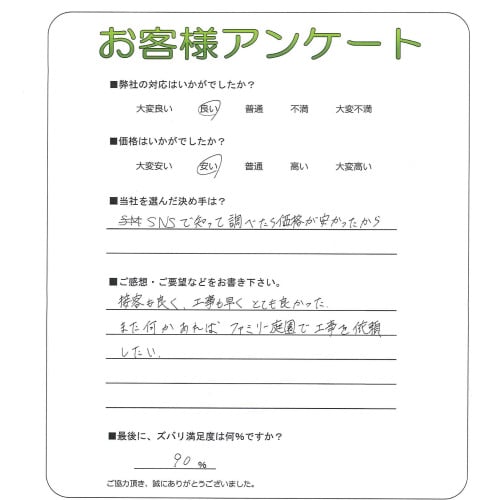 お客様アンケート
■弊社の対応はいかがでしたか？
大変良い 良い 普通 不満 大変不満
■価格はいかがでしたか？
大変安い 安い 普通 高い 大変高い
■当社を選んだ決め手は？
SNSで知って調べたら価格が安かったから
■ご感想・ご要望などをお書き下さい。
接客も良く、工事も早く とても良かった.
また何かあれば ファミリー庭園で工事を依頼
したい.
■最後に、ズバリ満足度は何%ですか？
90 %
ご協力頂き、誠にありがとうございました。